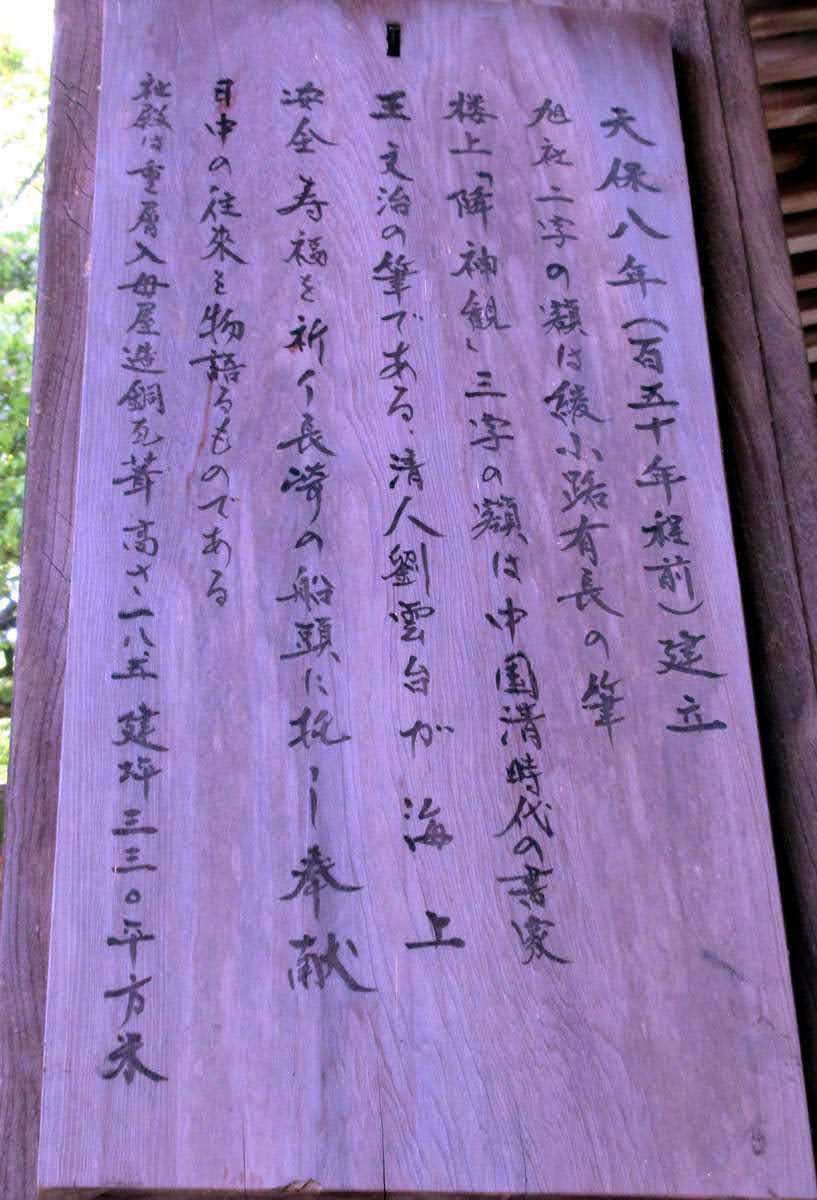 天保八年(百五十年程前)建立
旭社二字の額は綾小路有長の筆
楼上「降神観」三字の額は中国清時代の書家
王文治の筆である、清人劉雲台が海上
安全寿福を祈り長崎の船頭に托し奉献
日中の往来を物語るものである
社殿は重層入母屋造銅瓦葺高さ、一八・五建坪三三〇平方米